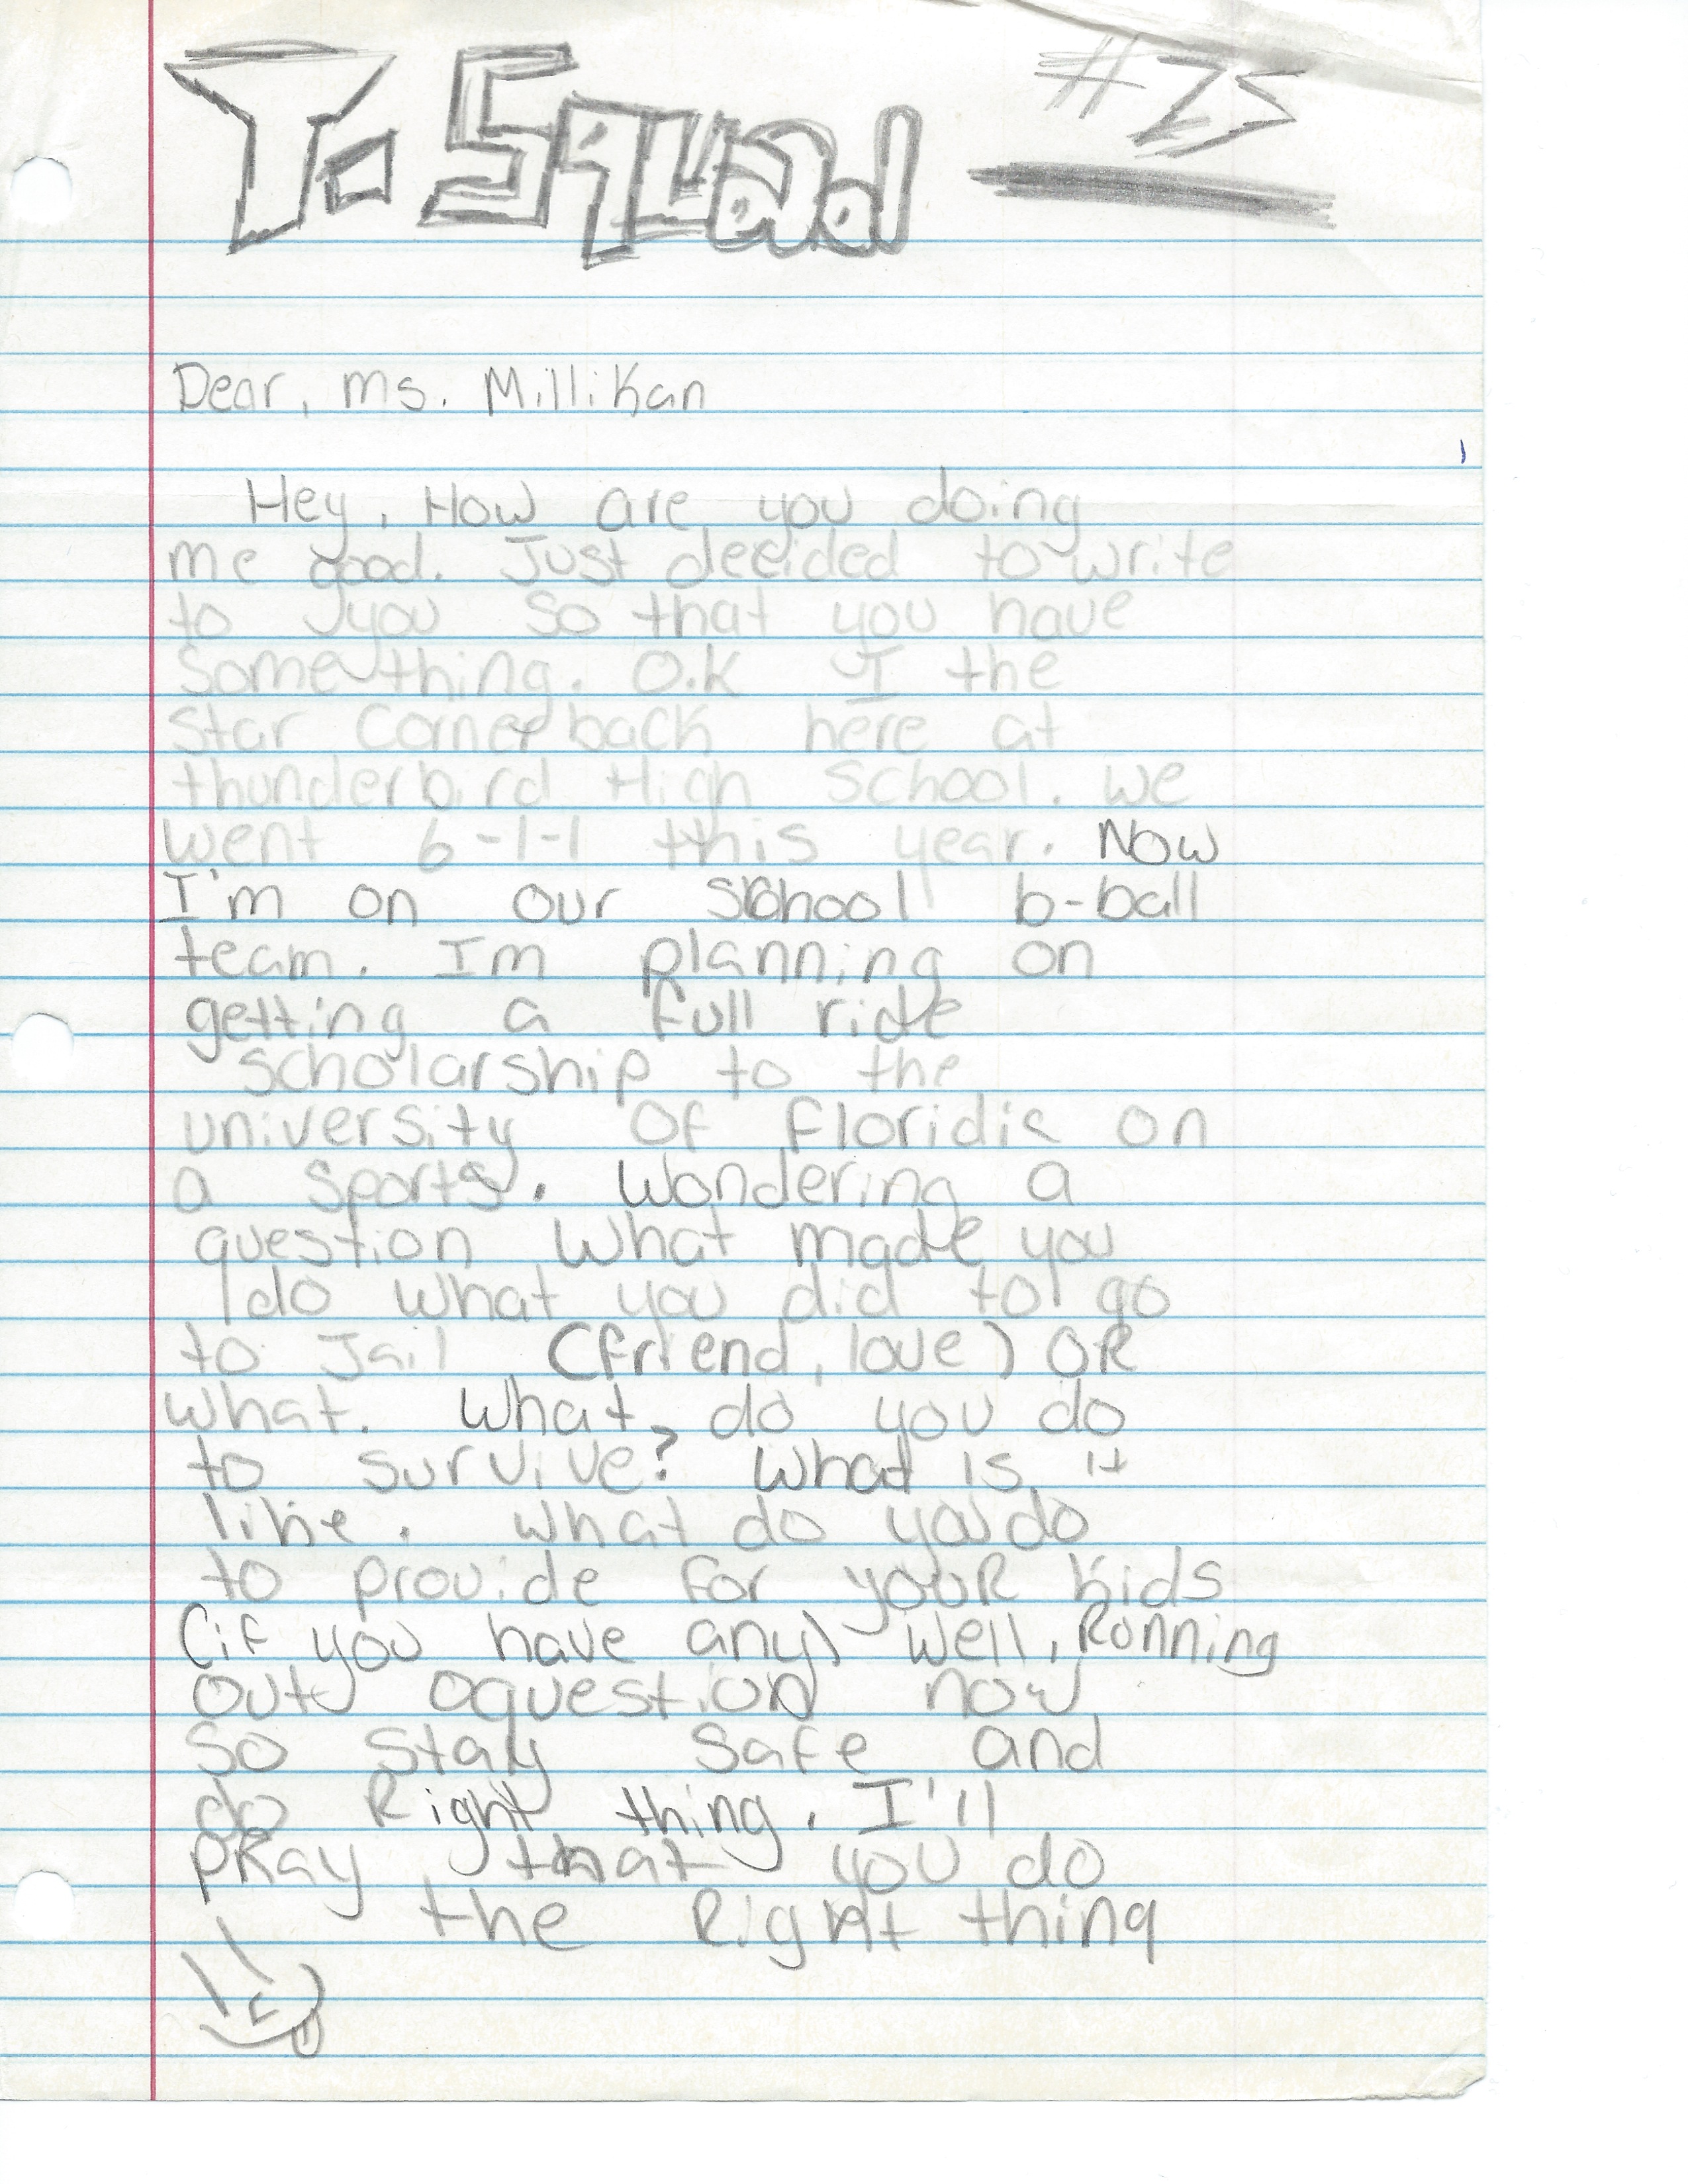 T. Squad #25
Dear, Ms. Millikan
Hey, How are you doing
me good. Just decided to write
to you so that you have
something. O.K I the
star Cornerback here at
thunderbird High School. We
went 6-1-1 this year. Now
I'm on our school b-ball
team. Im planning on
getting a full ride
scholarship to the
university Of floridia on
a sports. Wondering a
question What made you
do what you did to go
to Jail (friend, love) OR
what. What do you do
to survive? What is it
like. What do you do
to provide for youR kids
(if you have any) Well, Ronning
out oquestion now
So stay safe and
do Right thing. I'll
pRay that you do
the Right thing